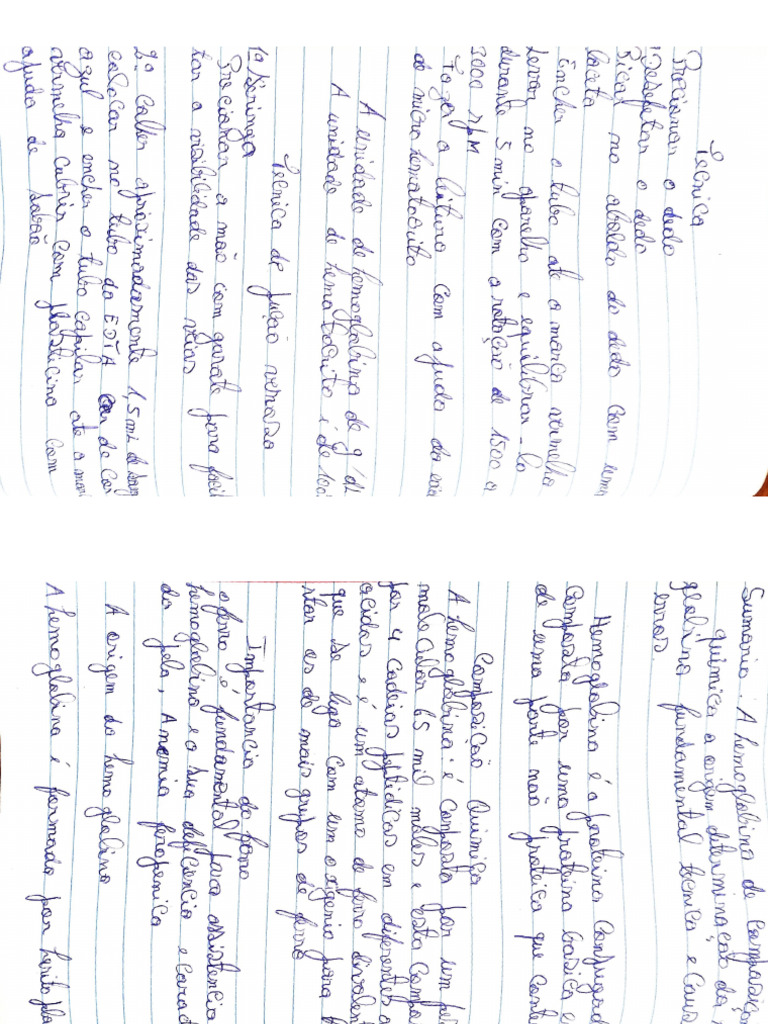 Tecnica
Precionar o dedo
Desefetar o dedo
Picar no abordo do dedo com uma
laceta
Encher o tubo até a marca vermelha
levar no aparelho e equilibrar-lo
durante 5 min com a rotação de 1500 a
3000 rpm
Fazer a leitura com ajuda do
de micro hematocrito
A unidade de hemoglobina de g/dl
A unidade de hematocrito é de
Tecnica de pução venosa
1º Seringa
Precionar a mão com garate para facil
tar a visibilidade das veias
2º Colher aproximadamente 1,5 ml de sang
colocar no tubo da EDTA de Cor
azul e encher o tubo capilar ate a mar
vermelha cubrir com plasticina com
ajuda de sabão
Sumário: A hemoglobina de composição
química a origem determinação da
globina fundamental tecnica e Caus
erros.
Hemoglobina é a proteina Conjugad
Composta por uma proteina basica e
de uma parte não proteica que conte
Composição Quimica
A hemoglobina: é Composta por um pe
molecular 65 mil moles e esta Compo
por 4 cadeias peptidicas em diferentes a
acidos e é um atomo de ferro divalent
que se liga com um oxigenio para
ntar os de mais grupos de ferro
Importancia do ferro
o ferro é fundamental para assistencia
hemoglobina e a sua deficiencia e carat
da pela, Anemia feropenica
A origem da hemoglobina
A hemoglobina é formada por